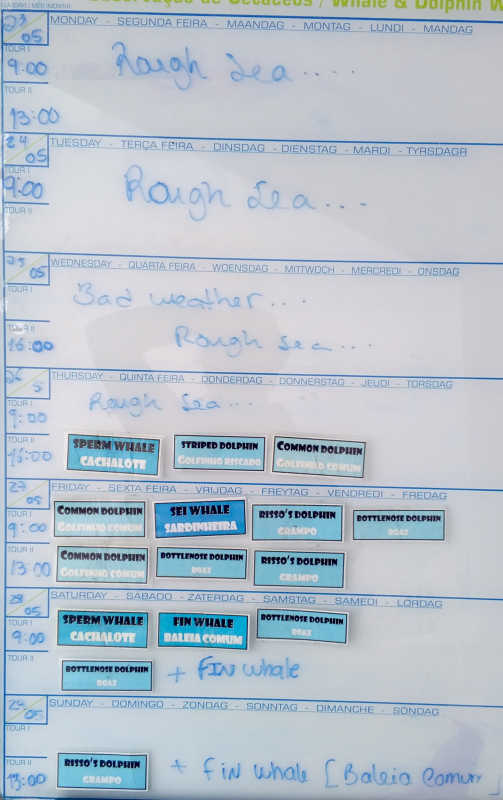 Observação de Cetáceos / Whale & Dolphin W
23
05
MONDAY - SEGUNDA FEIRA - MAANDAG - MONTAG - LUNDI - MANDAG
TOUR I
9:00
Rough Sea....
TOUR II
13:00
24
05
TUESDAY - TERÇA FEIRA - DINSDAG - DIENSTAG - MARDI - TYRSDAGR
TOUR I
9:00
Rough Sea...
TOUR II
25
05
WEDNESDAY - QUARTA FEIRA - WOENSDAG - MITTWOCH - MERCREDI - ONSDAG
TOUR I
Bad weather...
TOUR II
16:00
Rough sea...
26
5
THURSDAY - QUINTA FEIRA - DONDERDAG - DONNERSTAG - JEUDI - TORSDAG
TOUR I
9:00
Rough Sea...
TOUR II
SPERM WHALE
CACHALOTE
STRIPED DOLPHIN
GOLFINHO RISCADO
COMMON DOLPHIN
GOLFINHO COMUM
27
05
FRIDAY - SEXTA FEIRA - VRIJDAG - FREYTAG - VENDREDI - FREDAG
TOUR I
9:00
COMMON DOLPHIN
GOLFINHO COMUM
SEI WHALE
SARDINHEIRA
RISSO'S DOLPHIN
GRAMPO
BOTTLENOSE DOLPHIN
ROAZ
TOUR II
13:00
COMMON DOLPHIN
GOLFINHO COMUM
BOTTLENOSE DOLPHIN
ROAZ
RISSO'S DOLPHIN
GRAMPO
28
05
SATURDAY - SÁBADO - ZATERDAG - SAMSTAG - SAMEDI - LORDAG
TOUR I
9:00
SPERM WHALE
CACHALOTE
FIN WHALE
BALEIA COMUM
BOTTLENOSE DOLPHIN
ROAZ
TOUR II
BOTTLENOSE DOLPHIN
ROAZ
+ FIN whale
29
05
SUNDAY - DOMINGO - ZONDAG - SONNTAG - DIMANCHE - SÖNDAG
TOUR I
TOUR II
13:00
RISSO'S DOLPHIN
GRAMPO
+ fin whale [Baleia Comum]